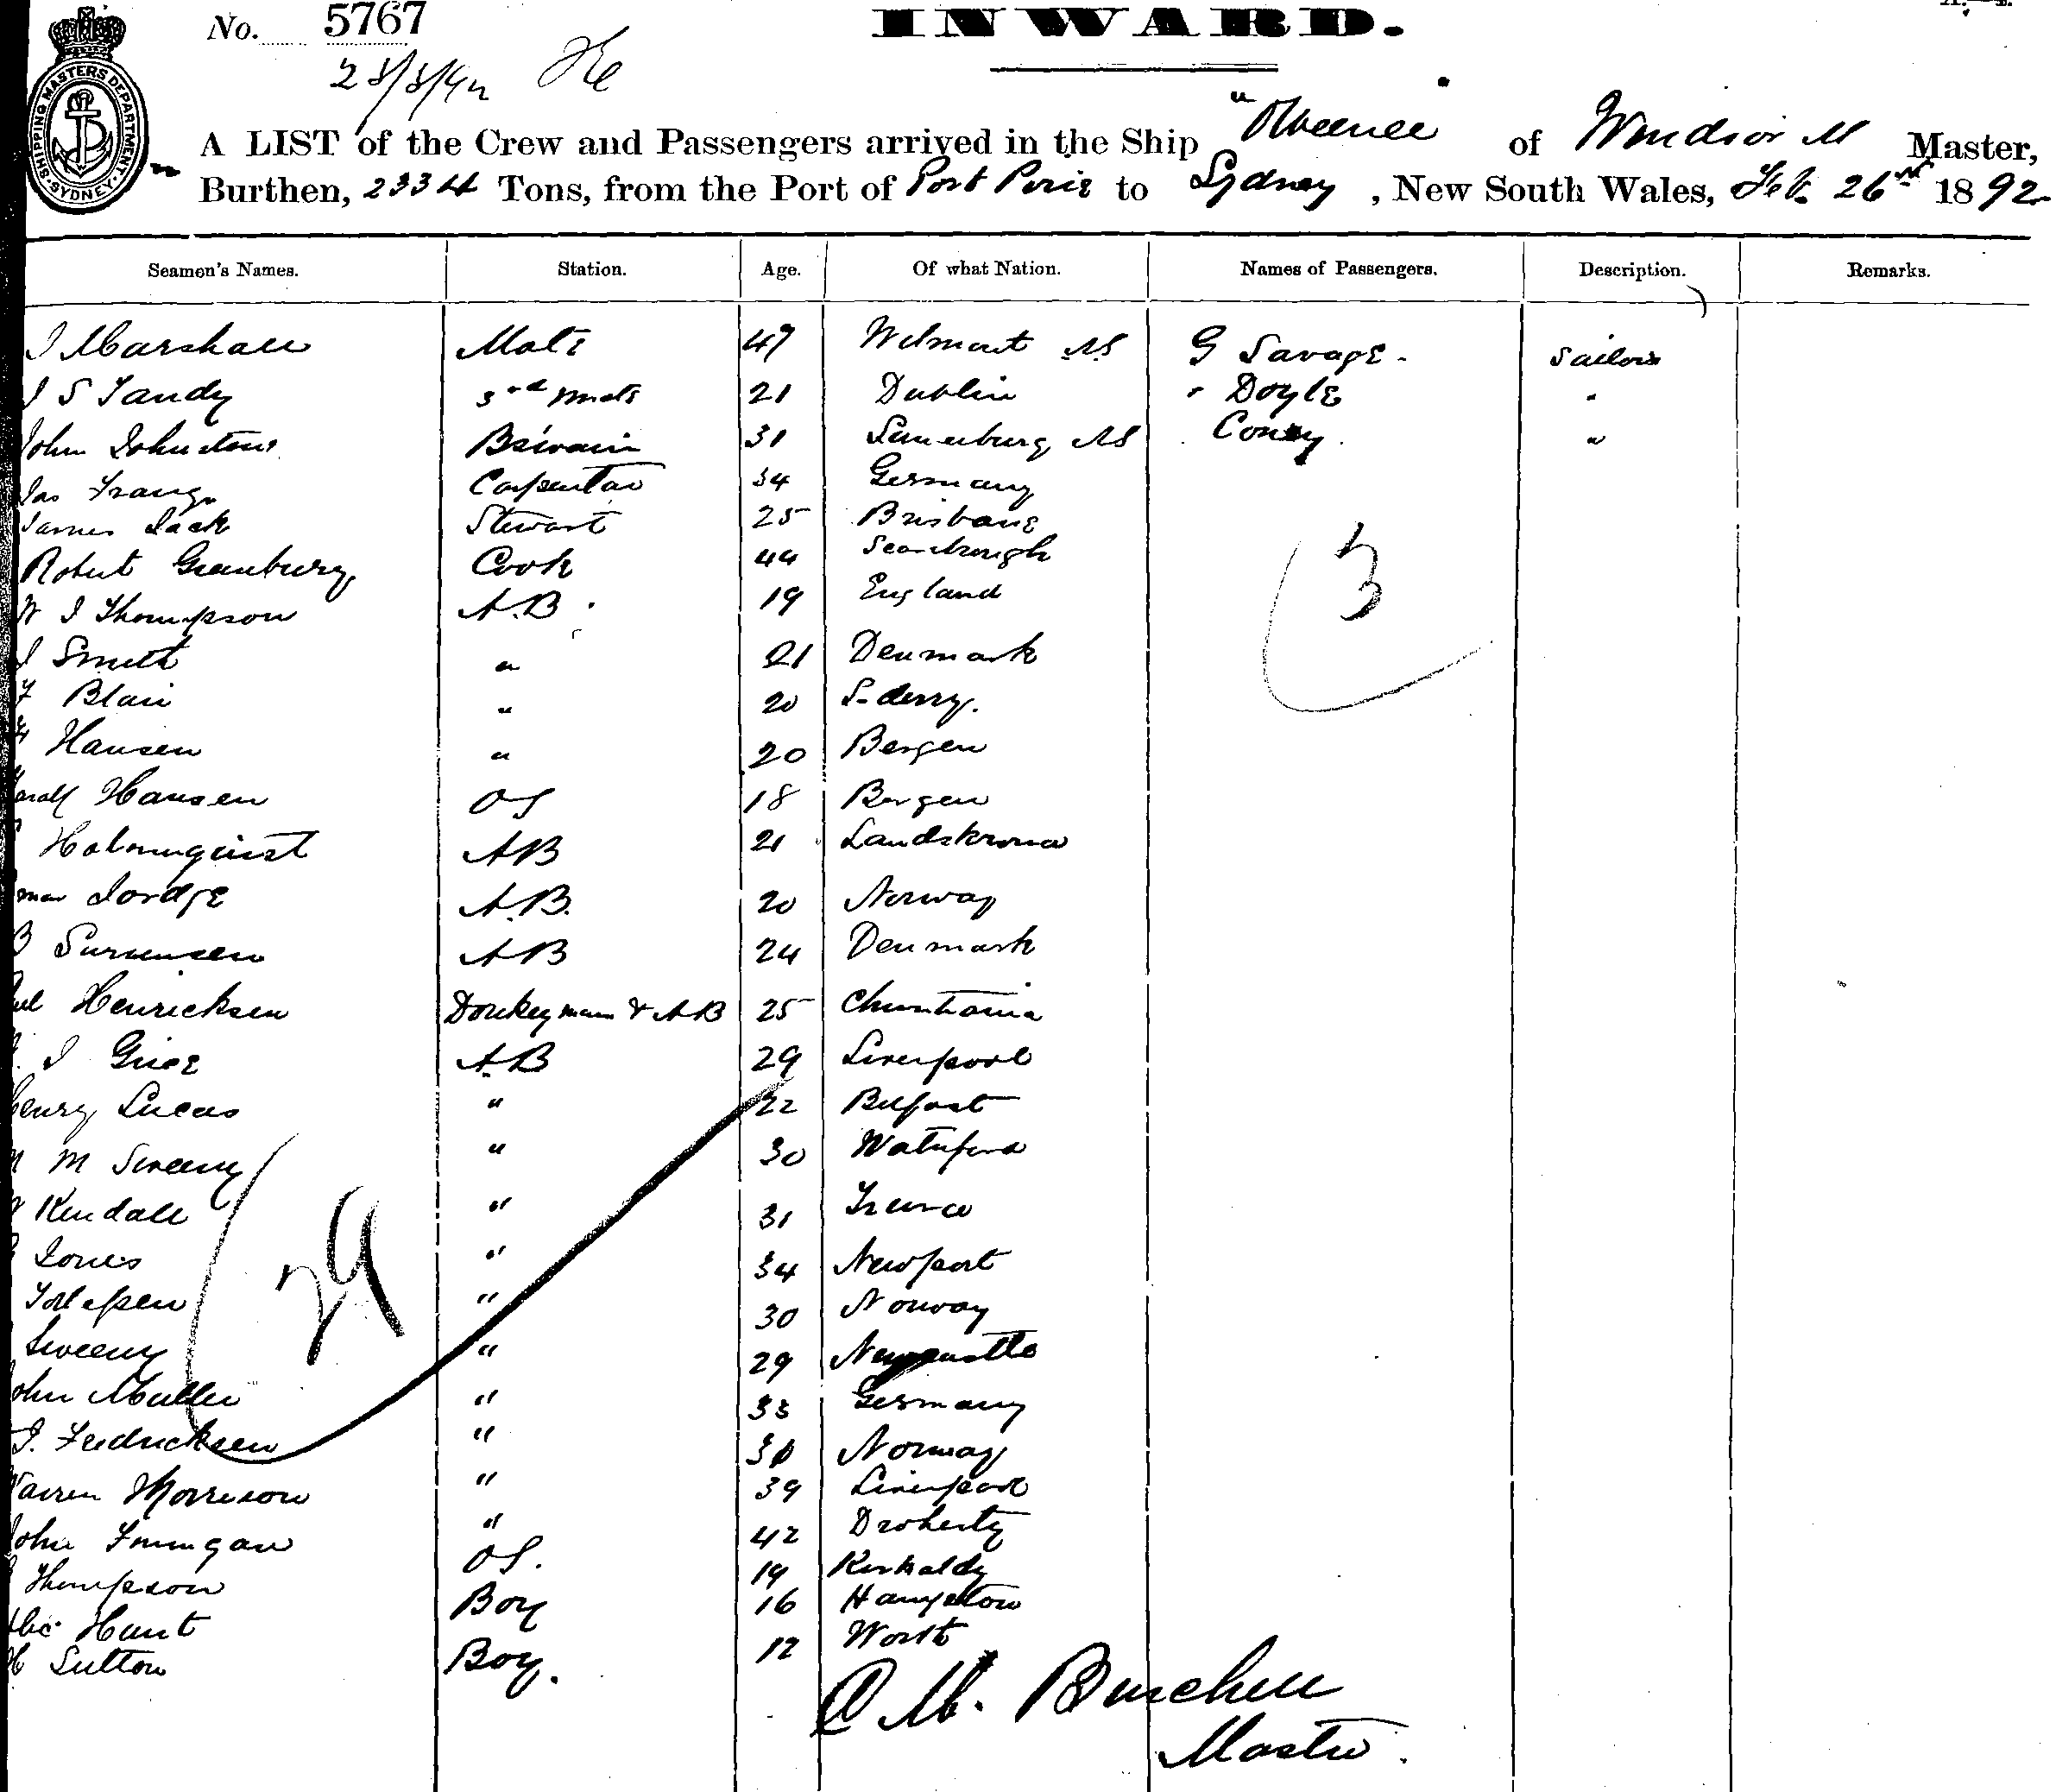 No. 5767
INWARD.
SHIPPING MASTERS DEPARTMENT. SYDNEY.
A LIST of the Crew and Passengers arrived in the Ship of Windsor Master,
Burthen, 2334 Tons, from the Port of Port Pirie to Sydney, New South Wales, Feb. 26th 1892
Seamen's Names. Station. Age. Of what Nation. Names of Passengers. Description. Remarks.
J Marshall Mate 47 Wilmont NS G Savage Sailors
J S Tandy 3rd Mate 21 Dublin " Doyle "
John Johnstone 31 Lunenburg NS "
Jas Carpenter 34 Germany
James Jack Stewart 25 Brisbane
Robert Granbury Cook 44 Scarbrough
W J Thompson A.B. 19 England
3
J Smith " 21 Denmark
Blair " 20 L-derry.
Hansen " 20 Bergen
Hansen OS 18 Bergen
Holmnquist AB 21 Landskrona
A.B. 20 Norway
AB 24 Denmark
Henricksen Donkeyman & AB 25 Christiania
J Grice A.B 29 Liverpool
Henry Lucas " 22 Belfast
M Sweeny " 30 Waterford
Kendall " 31 Truro
29
Jones " 34 Newport
" 30 Norway
Sweeny " 29 Newcastle
John Muller " 33 Germany
J. Fredricksen " 30 Norway
Warren Morrison " 39 Liverpool
John Finnigan " 42
Thompson OS. 19 Kirkaldy
Hunt Boy 16
H Sutton Boy. 17 Worth
C M. Burchell
Master.